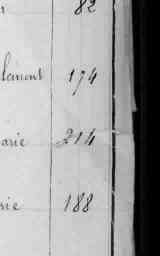 82
lement 174
arie 214
rie 188